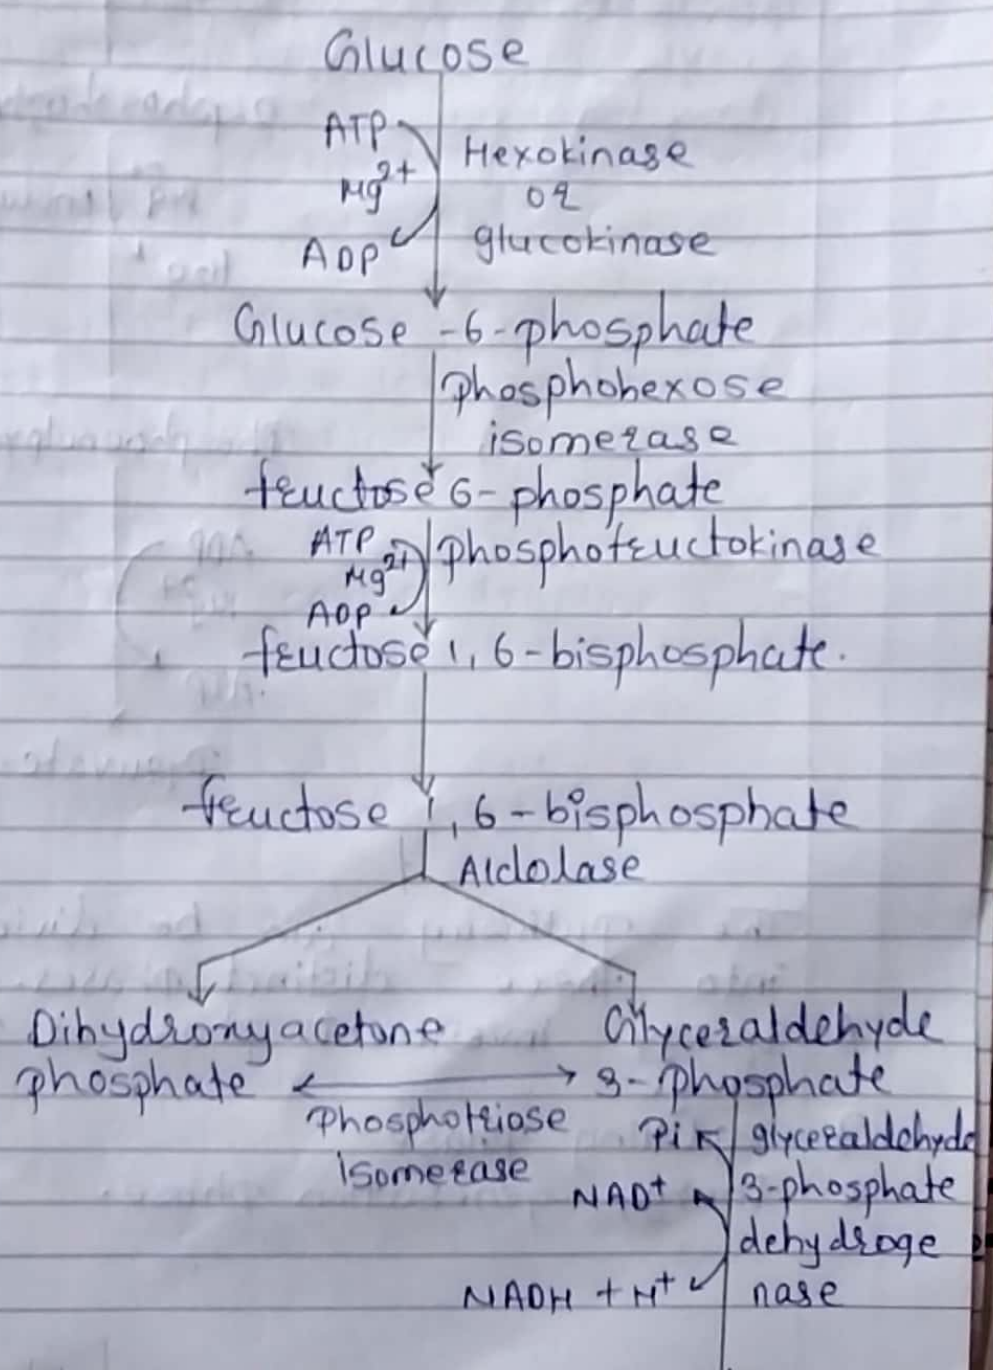 Glucose
ATP
Mg2+
ADP
Hexokinase
or
glucokinase
Glucose -6-phosphate
phosphohexose
isomerase
fructose 6-phosphate
ATP
Mg2+
ADP
phosphofructokinase
fructose 1,6-bisphosphate.
fructose 1,6-bisphosphate
Aldolase
Dihydroxyacetone
phosphate
Glyceraldehyde
3-phosphate
Phosphotriose
isomerase
Pi
NAD+
NADH + H+
glyceraldehyde
3-phosphate
dehydroge
nase